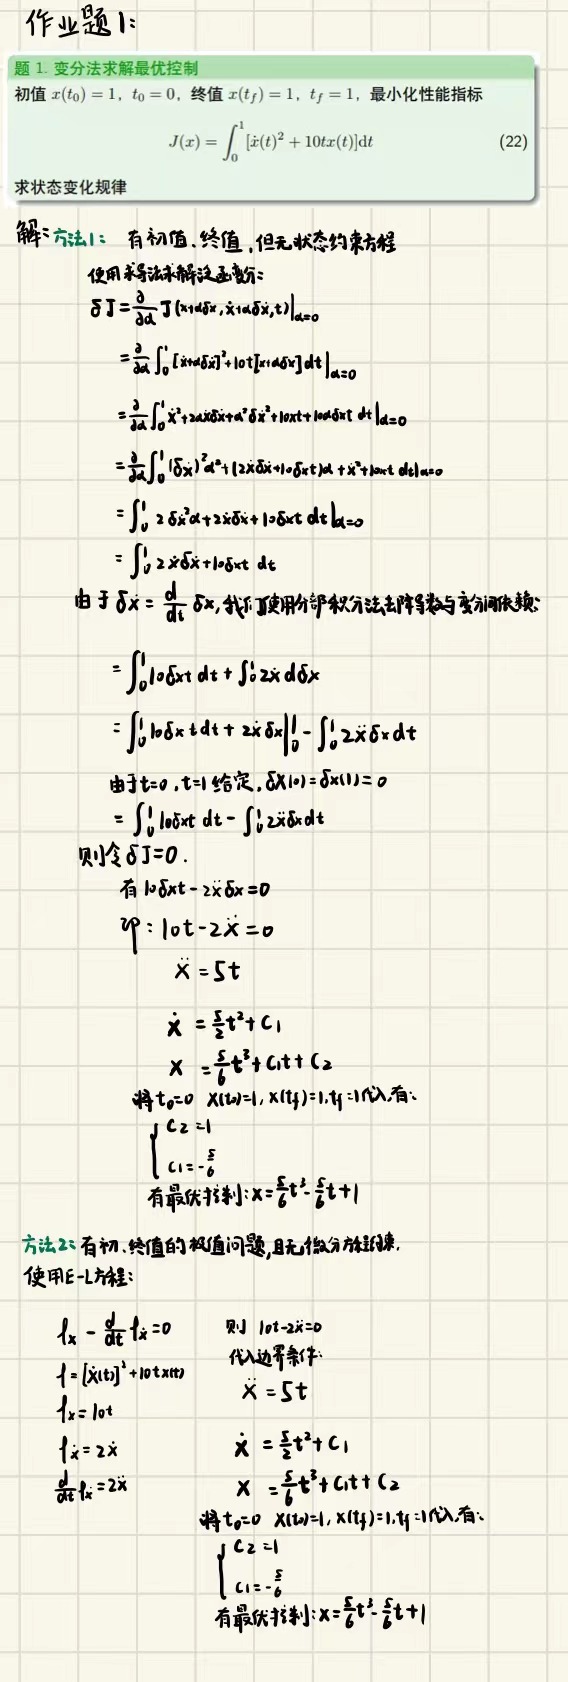 作业题1:
题 1. 变分法求解最优控制
初值 x(t₀) = 1, t₀ = 0, 终值 x(t_f) = 1, t_f = 1, 最小化性能指标
J(x) = ∫₀¹ [ẋ(t)² + 10tx(t)]dt (22)
求状态变化规律
解: 方法1: 有初值、终值, 但无状态约束方程
使用求导法求解泛函变分:
δJ = ∂/∂α J(x+αδx, ẋ+αδẋ, t)|α=0
= ∂/∂α ∫₀¹ [ẋ+αδẋ]² + 10t[x+αδx] dt |α=0
= ∂/∂α ∫₀¹ ẋ² + 2αẋδẋ + α²δẋ² + 10xt + 10αδxt dt |α=0
= ∂/∂α ∫₀¹ (δẋ)²α² + (2ẋδẋ + 10δxt)α + ẋ² + 10xt dt|α=0
= ∫₀¹ 2δẋ²α + 2ẋδẋ + 10δxt dt|α=0
= ∫₀¹ 2ẋδẋ + 10δxt dt
由于 δẋ = d/dt δx, 我们使用分部积分法去除导数与变分间依赖:
= ∫₀¹ 10δxt dt + ∫₀¹ 2ẋ dδx
= ∫₀¹ 10δxt dt + 2ẋδx|₀¹ - ∫₀¹ 2ẍδx dt
由于t=0, t=1给定, δx(0)=δx(1)=0
= ∫₀¹ 10δxt dt - ∫₀¹ 2ẍδxdt
则令δJ=0.
有 10δxt - 2ẍδx=0
即: 10t - 2ẍ = 0
ẍ = 5t
ẋ = 5/2 t² + C₁
x = 5/6 t³ + C₁t + C₂
将t₀=0 x(t₀)=1, x(t_f)=1, t_f=1代入, 有:
{ C₂ = 1
C₁ = -5/6
有最优控制: x = 5/6 t³ - 5/6 t + 1
方法2: 有初、终值的极值问题, 且无微分方程约束.
使用E-L方程:
f_x - d/dt f_ẋ = 0
f = [ẋ(t)]² + 10tx(t)
f_x = 10t
f_ẋ = 2ẋ
d/dt f_ẋ = 2ẍ
则 10t - 2ẍ = 0
代入边界条件:
ẍ = 5t
ẋ = 5/2 t² + C₁
x = 5/6 t³ + C₁t + C₂
将t₀=0 x(t₀)=1, x(t_f)=1, t_f=1代入, 有:
{ C₂ = 1
C₁ = -5/6
有最优控制: x = 5/6 t³ - 5/6 t + 1